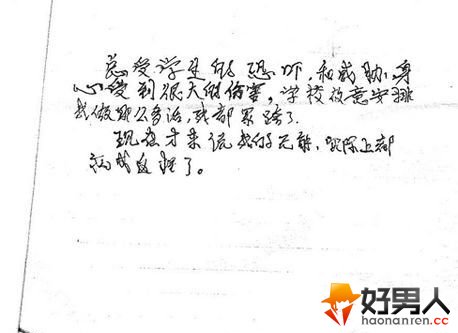 总受学生的恐吓，和威胁，身
心受到很大的伤害，学校故意安排
我做那么多活，我都累垮了。
现在才来说我的无能，实际上都
把我逼
好男人
haonanren.cc